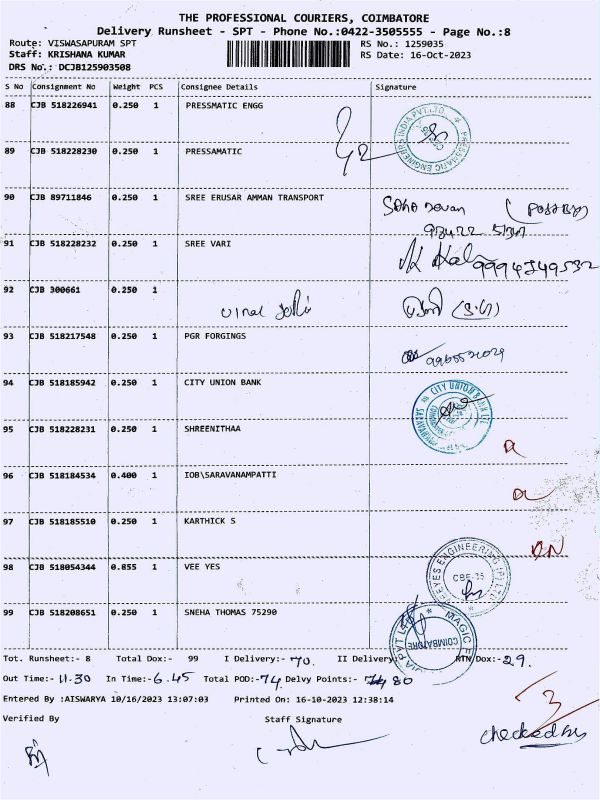 THE PROFESSIONAL COURIERS, COIMBATORE
Delivery Runsheet - SPT - Phone No.:0422-3505555 - Page No.:8
Route: VISWASAPURAM SPT RS No.: 1259035
Staff: KRISHANA KUMAR RS Date: 16-Oct-2023
DRS No.: DCJB125903508
S No Consignment No Weight PCS Consignee Details Signature
88 CJB 518226941 0.250 1 PRESSMATIC ENGG
89 CJB 518228230 0.250 1 PRESSAMATIC
90 CJB 89711846 0.250 1 SREE ERUSAR AMMAN TRANSPORT
91 CJB 518228232 0.250 1 SREE VARI
92 CJB 300661 1
93 CJB 518217548 0.250 1 PGR FORGINGS
94 CJB 518185942 0.250 1 CITY UNION BANK
CITY UNION BANK
95 CJB 518228231 0.250 1 SHREENITHAA
96 CJB 518184534 0.400 1 IOB\SARAVANAMPATTI
97 CJB 518185510 0.250 1 KARTHICK S
DN
98 CJB 518054344 0.855 1 VEE YES
99 CJB 518208651 0.250 1 SNEHA THOMAS 75290
COIMBATORE
Tot. Runsheet:- 8 Total Dox:- 99 I Delivery:- 70. II Delivery: RTN Dox:- 29.
Out Time:- 11.30 In Time:- 6.45 Total POD:- 74 Delvy Points:- 80
Entered By :AISWARYA 10/16/2023 13:07:03 Printed On: 16-10-2023 12:38:14
Verified By Staff Signature
checked by